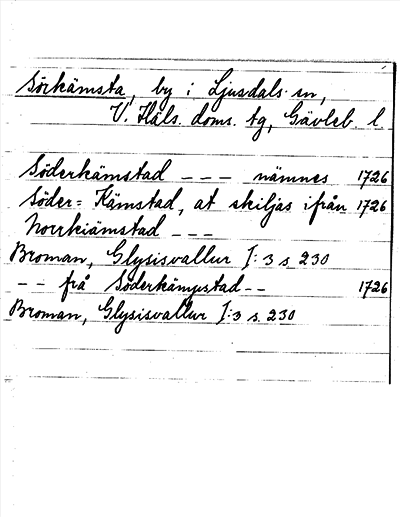 Sörkämsta, by i Ljusdals sn,
V. Häls. doms. tg, Gävleb. l.
Söderkämstad --- nämnes 1726
Söder= Kämstad, at skiljas ifrån 1726
Norrkiämstad ---
Broman, Glysisvallur I:3 s 230
-- frå Söderkämpstad-- 1726
Broman, Glysisvallur I:3 s. 230